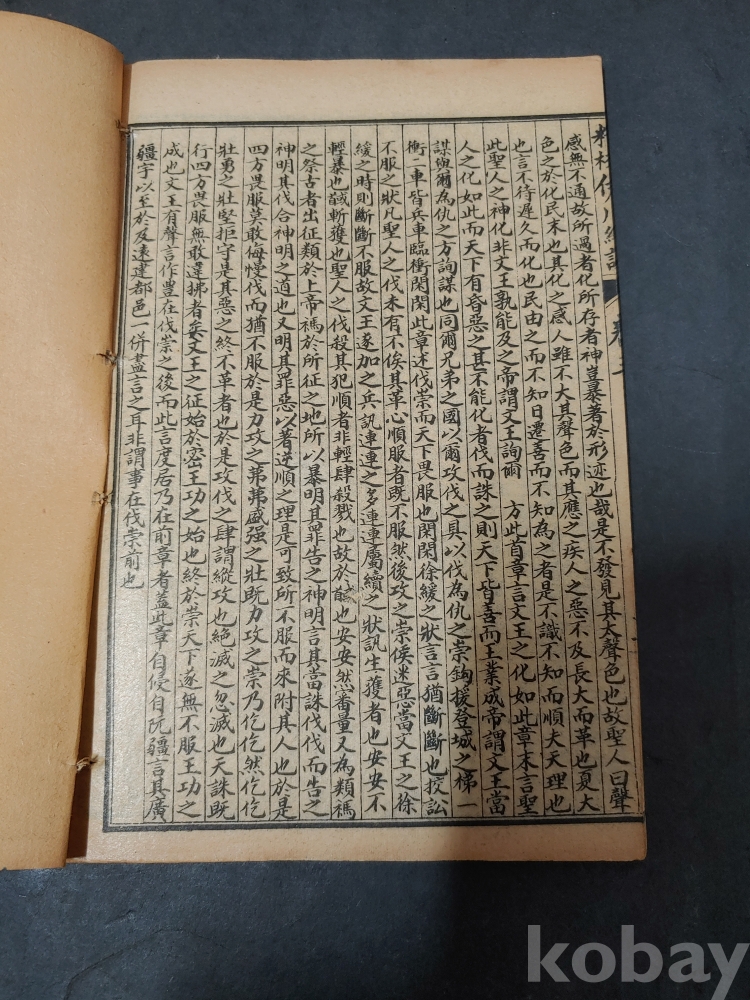 感無不通故所過者化所存者神豈暴著於形迹也哉是不發見其大聲色也故聖人曰聲
色之於化民末也其化之感人雖不大其聲色而其應之疾人之惡不及長大而革也夏大
也言不待遲久而化也民由之而不知日遷善而不知為之者是不識不知而順夫天理也
此聖人之神化非文王孰能及之帝謂文王詢爾 方此首章言文王之化如此章末言聖
人之化如此而天下有昏惡之甚不能化者伐而誅之則天下皆善而王業成帝謂文王當
謀與爾為仇之方詢謀也同爾兄弟之國以爾攻伐之具以伐為仇之崇鉤援登城之梯一
衝二車皆兵車臨衝閑閑此章述伐崇而天下畏服也閑閑徐緩之狀言言猶斷斷也挍訟
不服之狀凡聖人之伐未有不俟其革心順服者既不服然後攻之崇侯迷惡當文王之徐
緩之時則斷斷不服故文王遂加之兵訊連連之多連連屬續之狀訊生獲者也安安不
輕暴也馘斬獲也聖人之伐殺其犯順者非輕肆殺戮也故於馘也安安然番量又為類禡
之祭古者出征類於上帝禡於所征之地所以暴明其罪告之神明言其當誅伐伐而告之
神明其伐合神明之道也又明其罪惡以著逆順之理是可致所不服而來附其人也於是
四方畏服莫敢侮慢伐而猶不服於是力攻之茀茀盛强之壯既力攻之崇乃仡仡然仡仡
壯勇之壯堅拒守是其惡之終不革者也於是攻伐之肆謂縱攻也絕滅之忽滅也天誅既
行四方畏服無敢違拂者矣文王之征始於密王功之始也終於崇天下遂無不服王功之
成也文王有聲言作豐在伐崇之後而此言度居乃在前章者盖此章自侵自阮疆言其廣
疆宇以至於及遠建都邑一併盡言之耳非謂事在伐崇前也
kobay